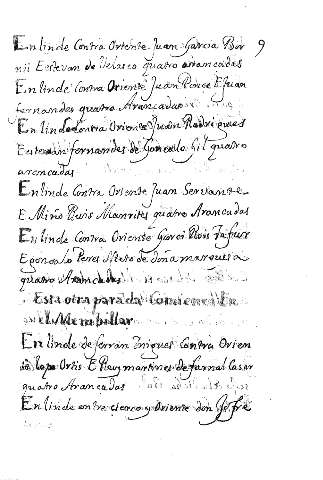 9
En linde Contra Oriente Juan Garcia Bor
nil Estevan de Velasco quatro arancadas
En linde Contra Oriente Juan Ponce E Juan
fernandes quatro Arancadas
En linde Contra Oriente Juan Rodrigues
Estevan fernandes de Goncalo Gil quatro
arancadas
En linde Contra Oriente Juan Servante
E Miño Ruis Manrites quatro Arancadas
En linde Contra Oriente Garci Ruis
E gonsalo Peres Nieto de doña marquesa
quatro Arancadas
Esta otra parada Comienca En
el Membrillar
En linde de ferran Inigues Contra Orien
te lope Ortis E Ruy martines de farnal Casar
quatro Arancadas
En linde entre cierco y Oriente don Jofre